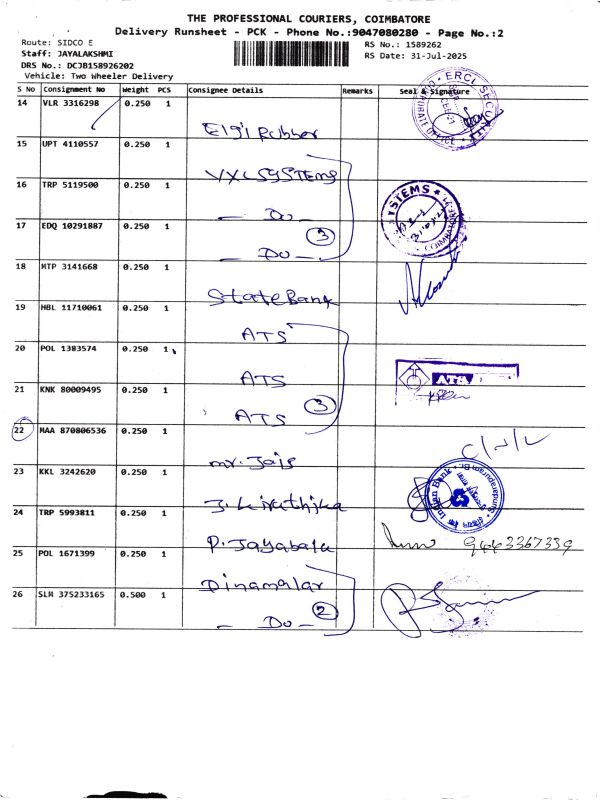 THE PROFESSIONAL COURIERS, COIMBATORE
Delivery Runsheet - PCK - Phone No.:9047080280 - Page No.:2
Route: SIDCO E
RS No.: 1589262
Staff: JAYALAKSHMI
RS Date: 31-Jul-2025
DRS No.: DCJB158926202
Vehicle: Two Wheeler Delivery
S No Consignment No Weight PCS Consignee Details Remarks Seal & Signature
14 VLR 3316298 0.250 1
Elgi Rubber
ERCL SECURITY
15 UPT 4110557 0.250 1
VXL SYSTEMS
16 TRP 5119500 0.250 1
— Do —
SYSTEMS
17 EDQ 10291887 0.250 1
3
— Do —
18 MTP 3141668 0.250 1
State Bank
19 HBL 11710061 0.250 1
ATS
20 POL 1383574 0.250 1
ATS
ATS
21 KNK 80009495 0.250 1
3
ATS
22 MAA 870806536 0.250 1
mr. Jais
23 KKL 3242620 0.250 1
Indian Bank
24 TRP 5993811 0.250 1
P. Jayabala
9443367339
25 POL 1671399 0.250 1
Dinamalar
26 SLM 375233165 0.500 1
2
— Do —